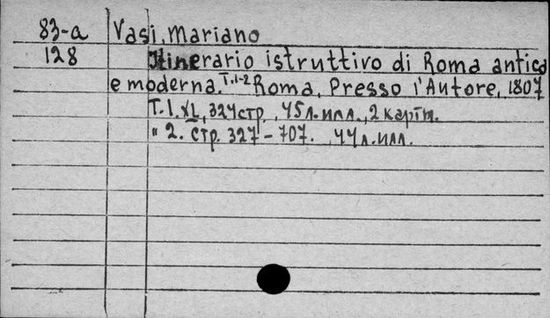 83-a Vasi, Mariano
128 Itinerario istruttivo di Roma antica
e moderna. T.1-2 Roma, Presso l'Autore, 1807
T.1. XL, 324 стр., 45 л. илл., 2 карт.
" 2. стр. 327-707. 44 л. илл.